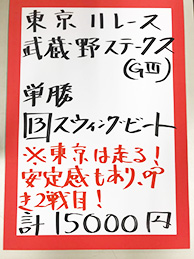 東京11レース
武蔵野ステークス
(GⅢ)
単勝
13スウィングビート
※東京は走る!
安定感もあり、叩
き2戦目!
計15000円